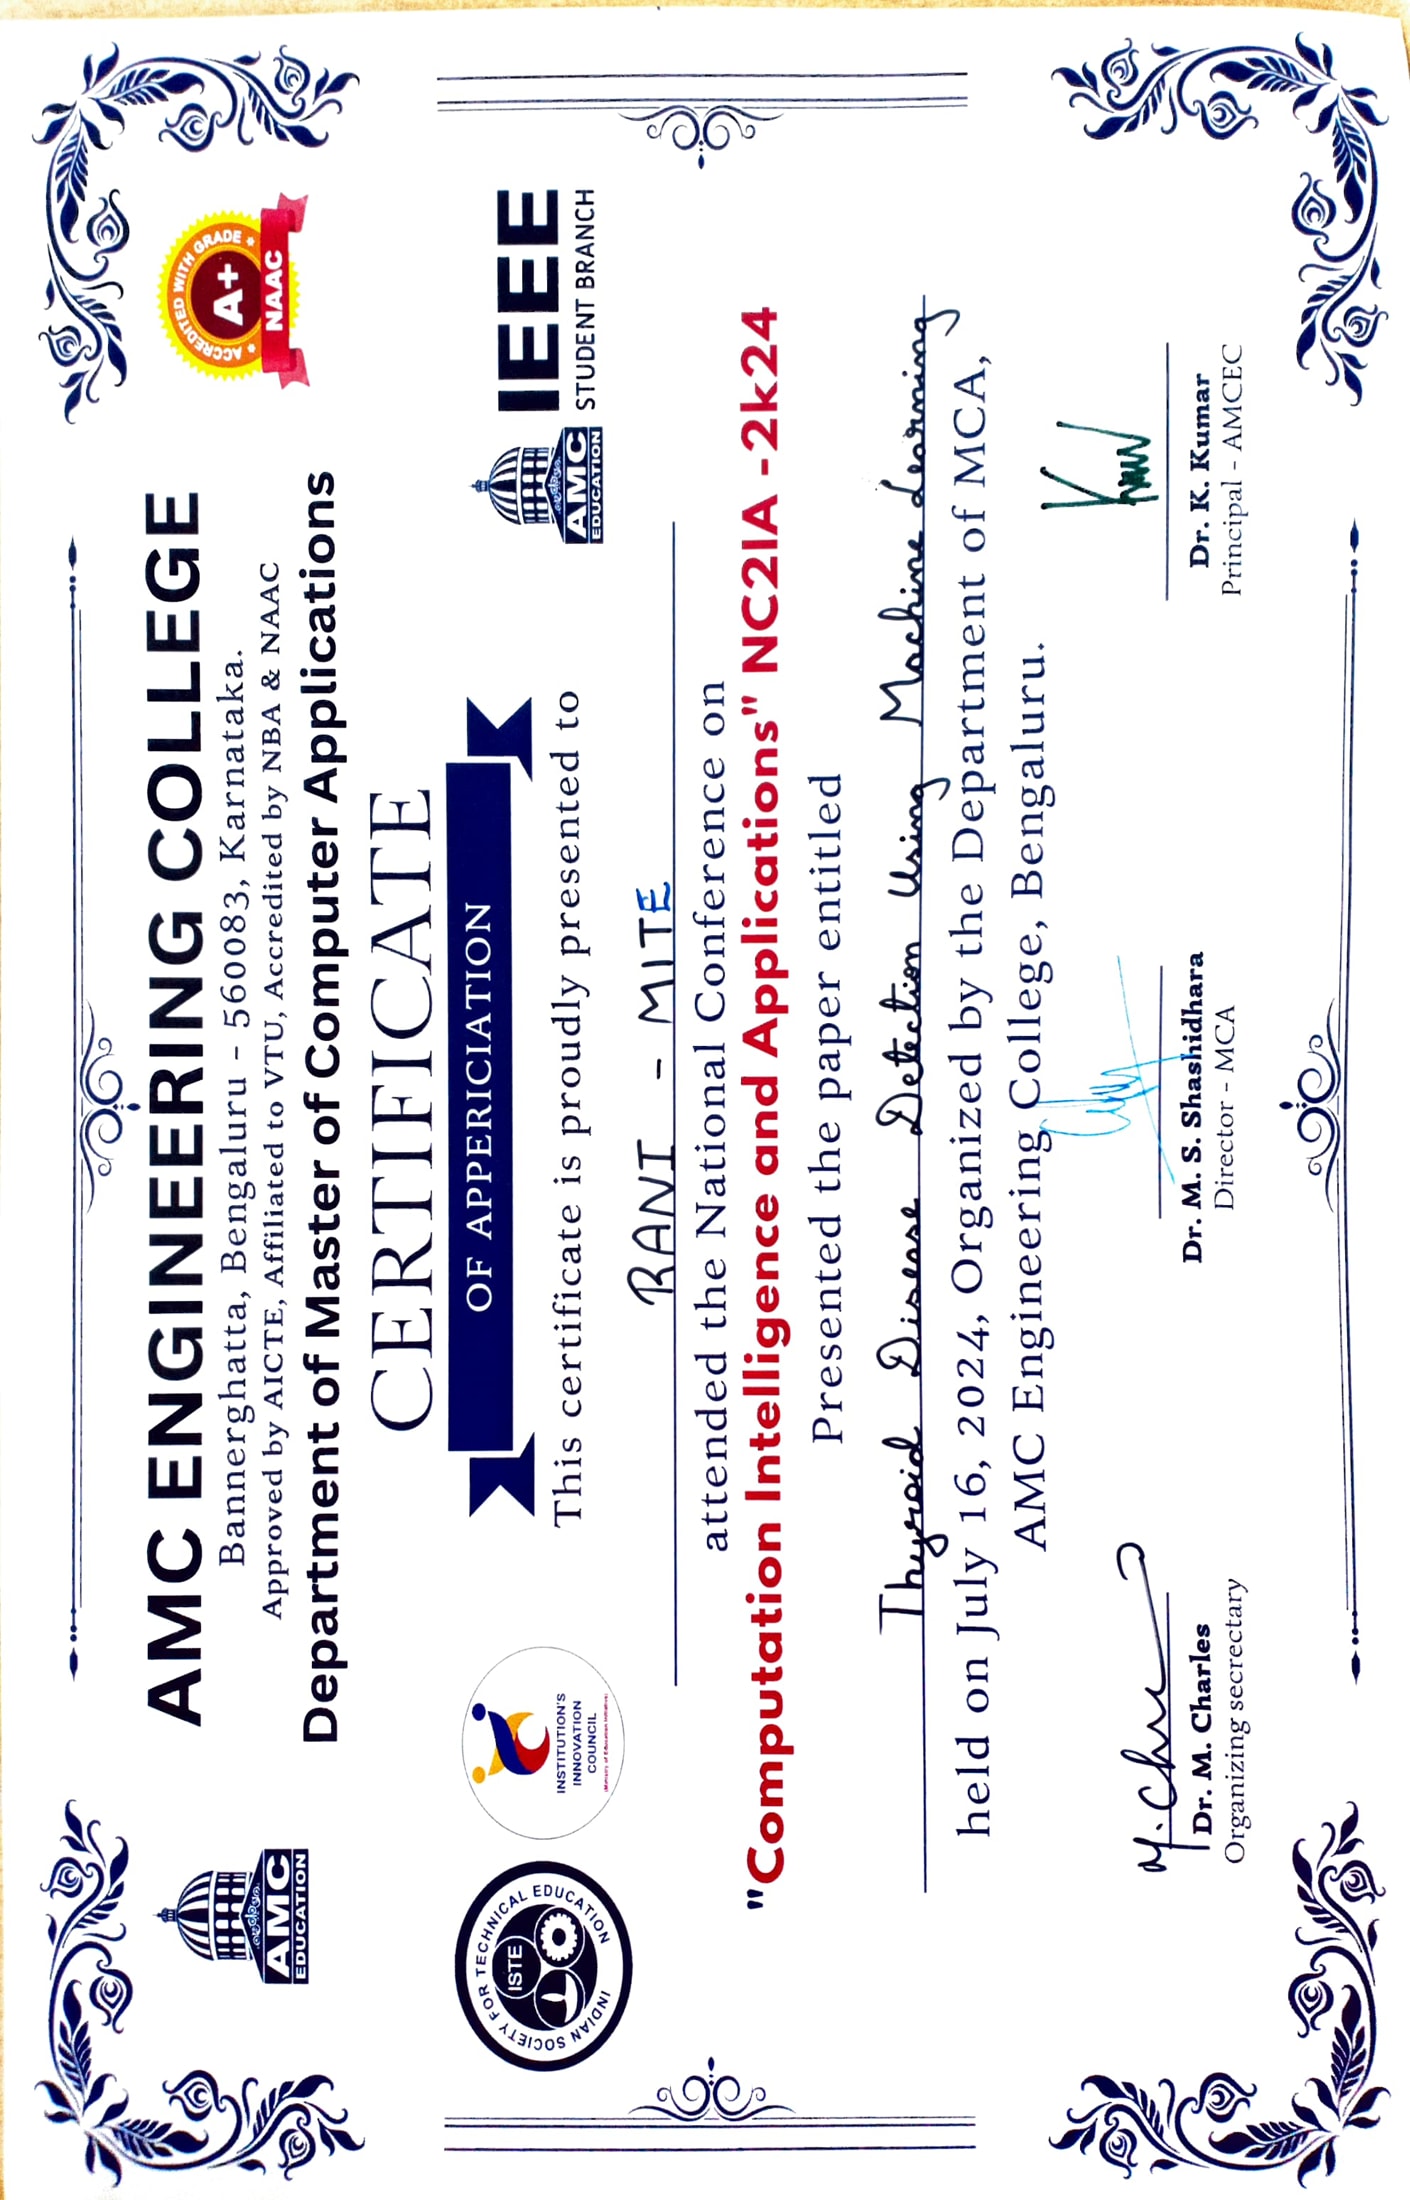 AMC ENGINEERING COLLEGE
Bannerghatta, Bengaluru - 560083, Karnataka.
Approved by AICTE, Affiliated to VTU, Accredited by NBA & NAAC
Department of Master of Computer Applications
AMC
EDUCATION
ACCREDITED WITH GRADE
A+
NAAC
CERTIFICATE
OF APPERICIATION
INDIAN SOCIETY FOR TECHNICAL EDUCATION
ISTE
INSTITUTION'S
INNOVATION
COUNCIL
(Ministry of Education Initiative)
This certificate is proudly presented to
AMC
EDUCATION
IEEE
STUDENT BRANCH
RANI - MITE
attended the National Conference on
"Computation Intelligence and Applications" NC2IA -2k24
Presented the paper entitled
Thyroid Disease Detection Using Machine Learning
held on July 16, 2024, Organized by the Department of MCA,
AMC Engineering College, Bengaluru.
Dr. M. Charles
Organizing secrectary
Dr. M. S. Shashidhara
Director - MCA
Dr. K. Kumar
Principal - AMCEC